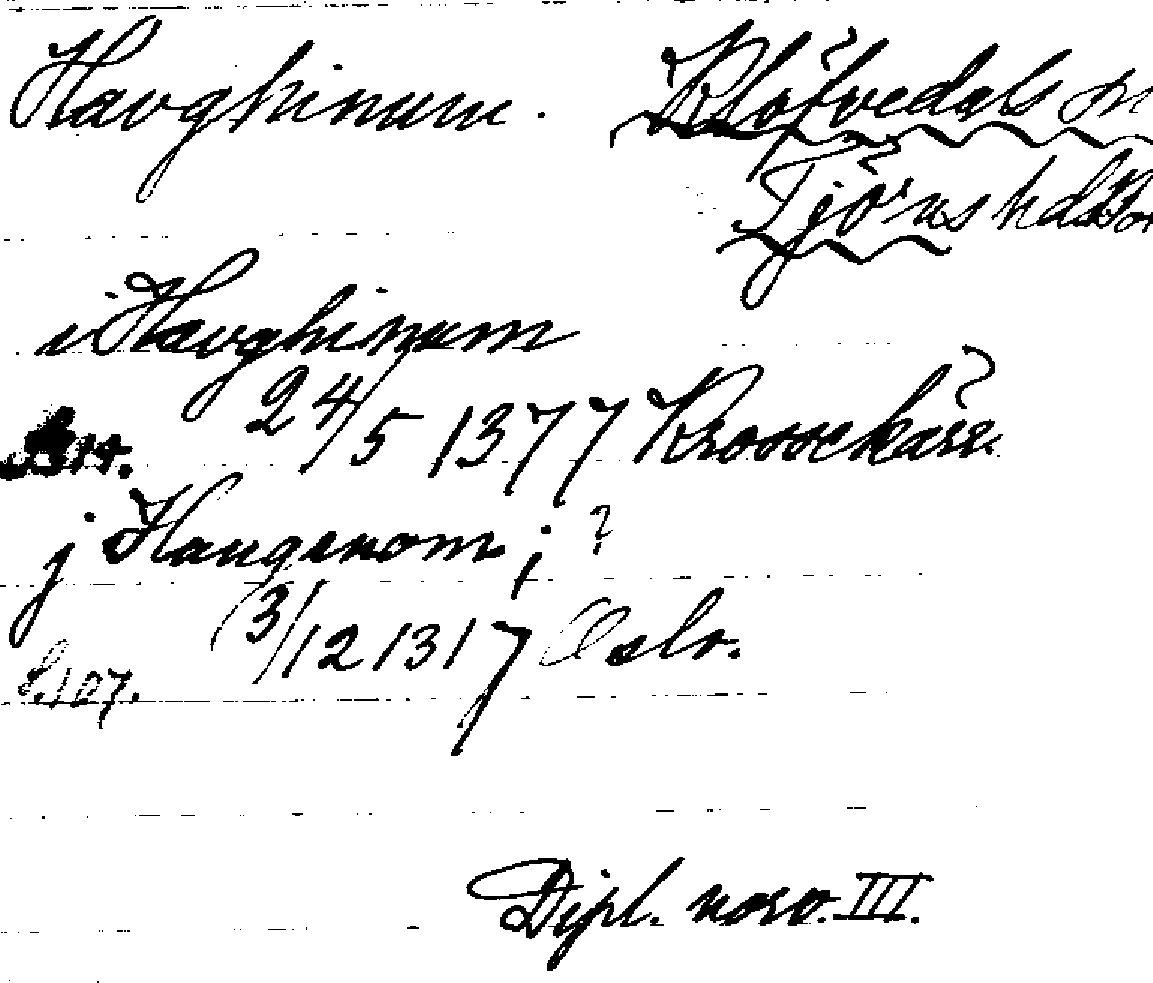 Havghinum. Klöfvedals sn
Tjörns hd
i Havghinum
24/5 1377 Krossekärr.
j Haugenom; ?
13/12 1317 Oslo.
S. 107.
Dipl. norv. III.